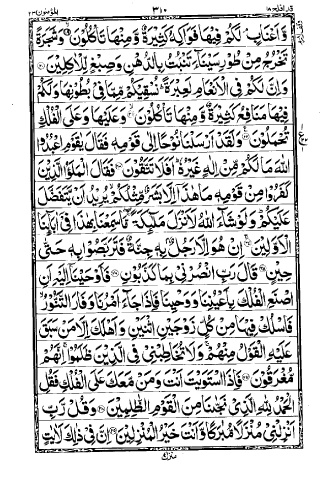 قد افلح ١٨ ٣١٠ المؤمنون ٢٣
وَّاَعْنَابٍ ۘ لَكُمْ فِيْهَا فَوَاكِهُ كَثِيْرَةٌ وَّمِنْهَا تَاْكُلُوْنَ ۙ وَشَجَرَةً
تَخْرُجُ مِنْ طُوْرِ سَيْنَآءَ تَنْۢبُتُ بِالدُّهْنِ وَصِبْغٍ لِّلْاٰكِلِيْنَ ۝
وَاِنَّ لَكُمْ فِي الْاَنْعَامِ لَعِبْرَةً ؕ نُسْقِيْكُمْ مِّمَّا فِيْ بُطُوْنِهَا وَلَكُمْ
فِيْهَا مَنَافِعُ كَثِيْرَةٌ وَّمِنْهَا تَاْكُلُوْنَ ۝ وَعَلَيْهَا وَعَلَى الْفُلْكِ
تُحْمَلُوْنَ ۝ وَلَقَدْ اَرْسَلْنَا نُوْحًا اِلٰى قَوْمِهٖ فَقَالَ يٰقَوْمِ اعْبُدُوا
اللّٰهَ مَا لَكُمْ مِّنْ اِلٰهٍ غَيْرُهٗ ؕ اَفَلَا تَتَّقُوْنَ ۝ فَقَالَ الْمَلَؤُا الَّذِيْنَ
كَفَرُوْا مِنْ قَوْمِهٖ مَا هٰذَاۤ اِلَّا بَشَرٌ مِّثْلُكُمْ يُرِيْدُ اَنْ يَّتَفَضَّلَ
عَلَيْكُمْ ؕ وَلَوْ شَآءَ اللّٰهُ لَاَنْزَلَ مَلٰٓئِكَةً ۖ مَّا سَمِعْنَا بِهٰذَا فِيْۤ اٰبَآئِنَا
الْاَوَّلِيْنَ ۝ اِنْ هُوَ اِلَّا رَجُلٌۢ بِهٖ جِنَّةٌ فَتَرَبَّصُوْا بِهٖ حَتّٰى
حِيْنٍ ۝ قَالَ رَبِّ انْصُرْنِيْ بِمَا كَذَّبُوْنِ ۝ فَاَوْحَيْنَاۤ اِلَيْهِ اَنِ
اصْنَعِ الْفُلْكَ بِاَعْيُنِنَا وَوَحْيِنَا فَاِذَا جَآءَ اَمْرُنَا وَفَارَ التَّنُّوْرُ ۙ
فَاسْلُكْ فِيْهَا مِنْ كُلٍّ زَوْجَيْنِ اثْنَيْنِ وَاَهْلَكَ اِلَّا مَنْ سَبَقَ
عَلَيْهِ الْقَوْلُ مِنْهُمْ ۚ وَلَا تُخَاطِبْنِيْ فِي الَّذِيْنَ ظَلَمُوْا ۚ اِنَّهُمْ
مُّغْرَقُوْنَ ۝ فَاِذَا اسْتَوَيْتَ اَنْتَ وَمَنْ مَّعَكَ عَلَى الْفُلْكِ فَقُلِ
الْحَمْدُ لِلّٰهِ الَّذِيْ نَجّٰىنَا مِنَ الْقَوْمِ الظّٰلِمِيْنَ ۝ وَقُلْ رَّبِّ
اَنْزِلْنِيْ مُنْزَلًا مُّبٰرَكًا وَّاَنْتَ خَيْرُ الْمُنْزِلِيْنَ ۝ اِنَّ فِيْ ذٰلِكَ لَاٰيٰتٍ